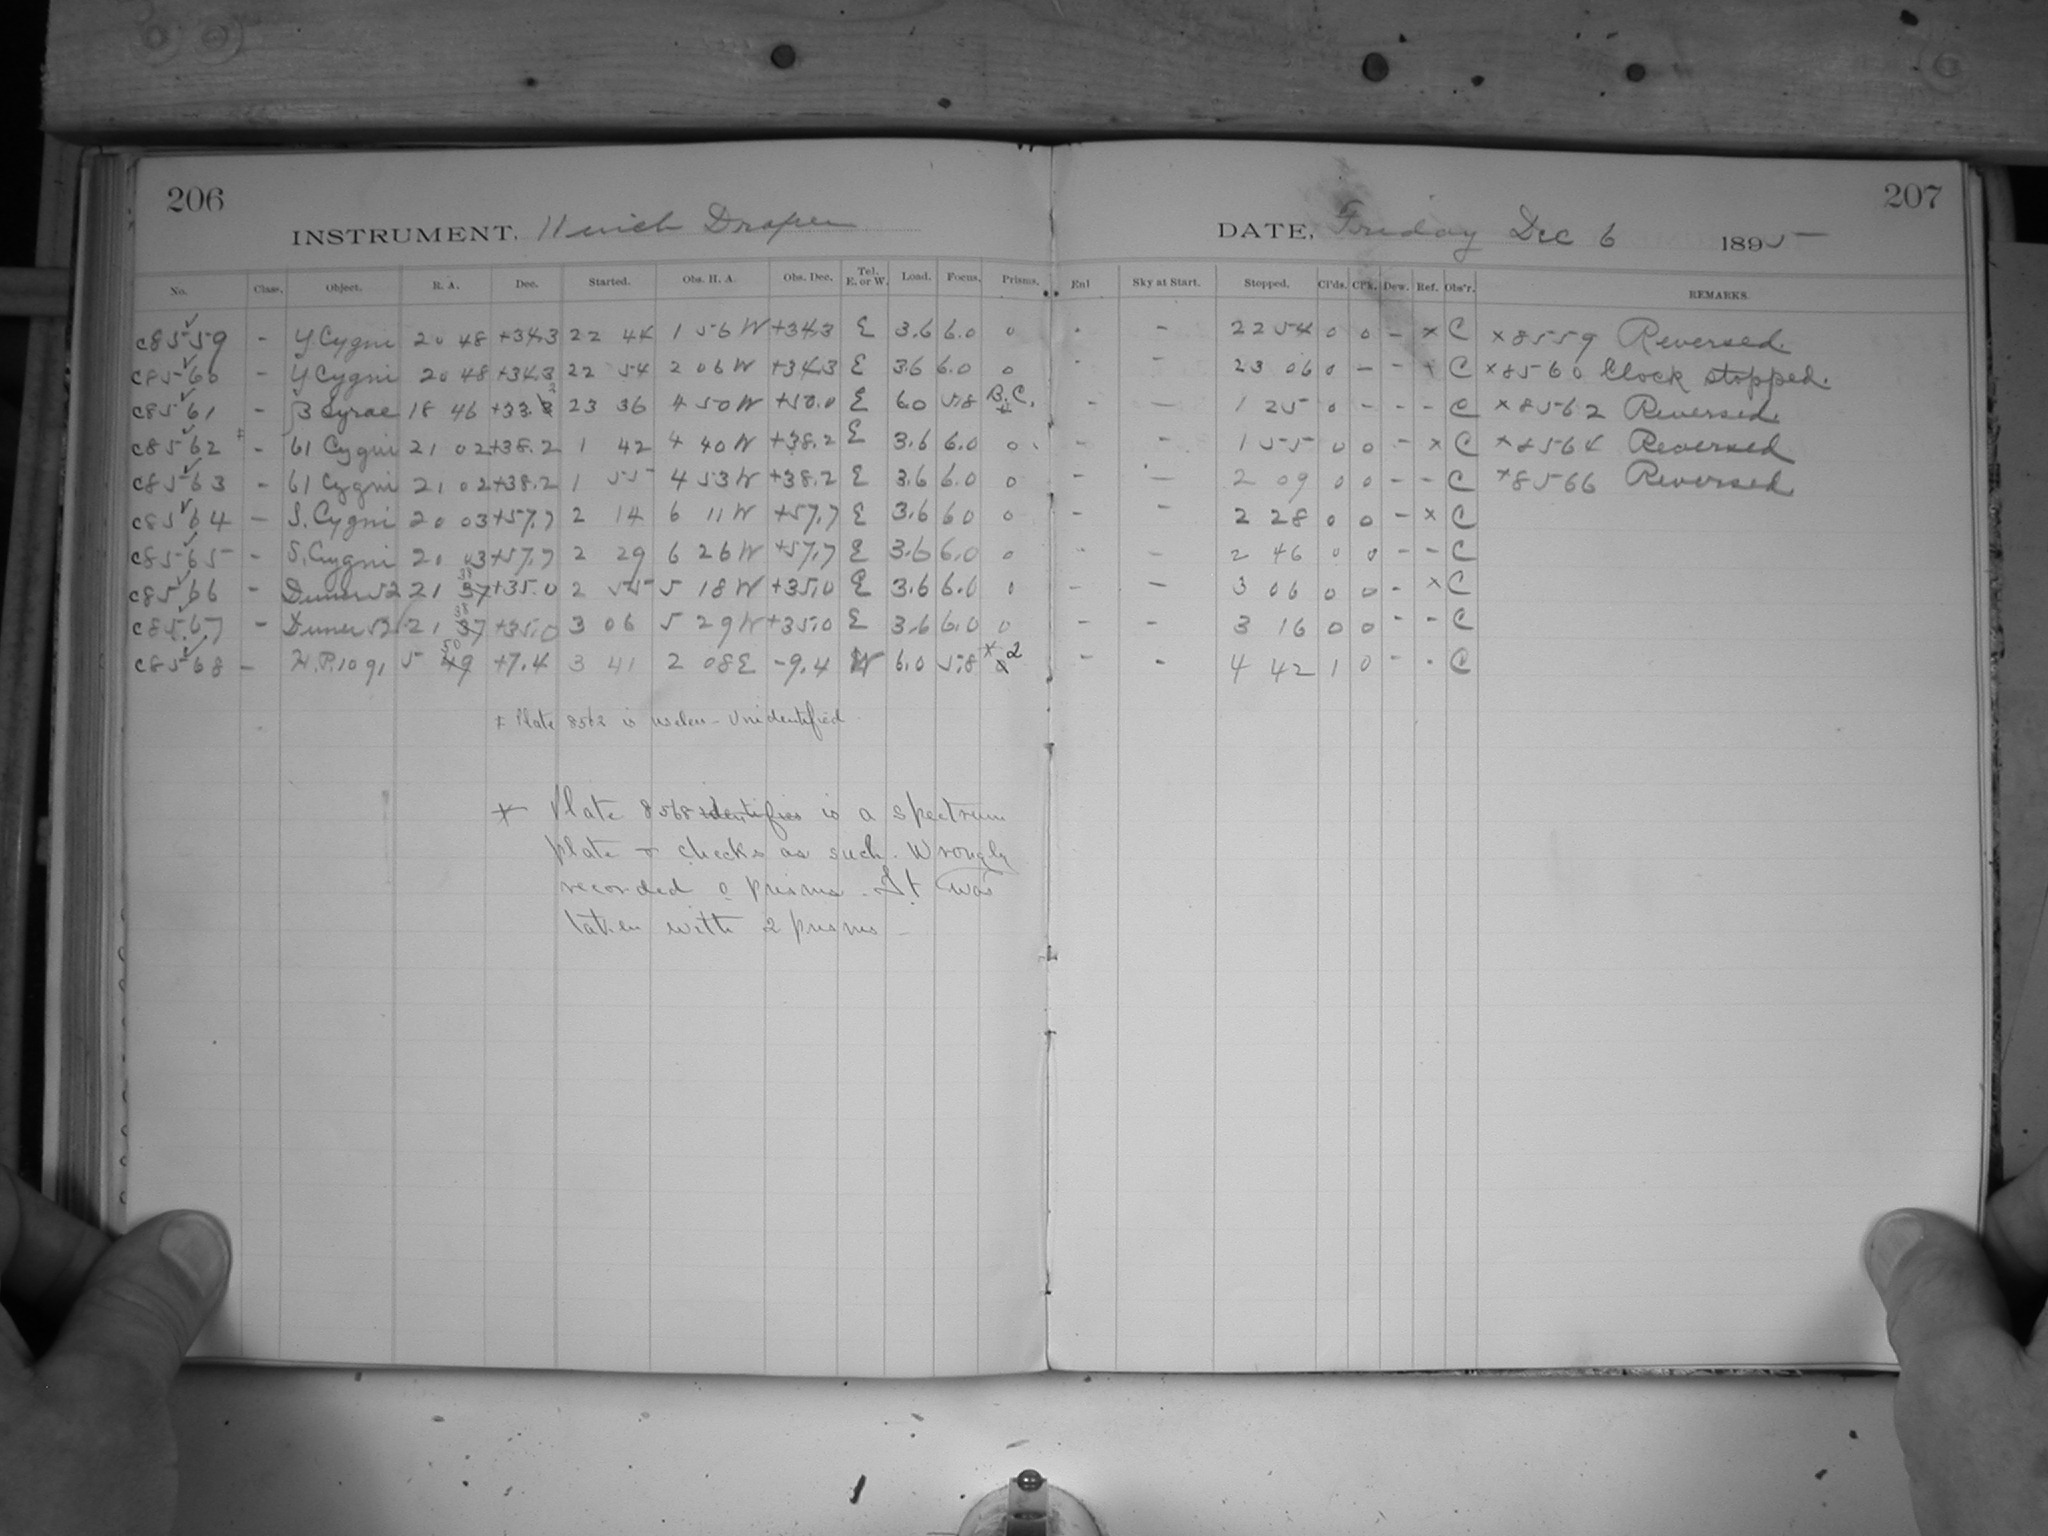 206
207
INSTRUMENT, 11 inch Draper
DATE, Friday Dec 6 1895
No. Class. Object. R. A. Dec. Started. Obs. H. A. Obs. Dec. Tel. E. or W. Load. Focus. Prisms. Enl Sky at Start. Stopped. Cl'ds. Cl'k. Dew. Ref. Obs'r. REMARKS.
c8559 - Y Cygni 20 48 +34.3 22 44 1 56 W +34.3 E 3.6 6.0 0 - - 22 54 0 0 - x C x8559 Reversed.
c8560 - Y Cygni 20 48 +34.3 22 54 2 06 W +34.3 E 3.6 6.0 0 - - 23 06 0 - - x C x8560 Clock stopped.
c8561 - β Lyrae 18 46 +33.2 23 36 4 50 W +50.0 E 6.0 5.8 B.C. - - 1 25 0 - - - C x8562 Reversed.
c8562 ‡ - 61 Cygni 21 02 +38.2 1 42 4 40 W +38.2 E 3.6 6.0 0 - - 1 55 0 0 - x C x8564 Reversed
c8563 - 61 Cygni 21 02 +38.2 1 55 4 53 W +38.2 E 3.6 6.0 0 - - 2 09 0 0 - - C x8566 Reversed.
c8564 - S. Cygni 20 03 +57.7 2 14 6 11 W +57.7 E 3.6 6.0 0 - - 2 28 0 0 - x C
c8565 - S. Cygni 20 03 +57.7 2 29 6 26 W +57.7 E 3.6 6.0 0 - - 2 46 0 0 - - C
c8566 - Duner 52 21 37 38 +35.0 2 55 5 18 W +35.0 E 3.6 6.0 0 - - 3 06 0 0 - x C
c8567 - Duner 52 21 37 38 +35.0 3 06 5 29 W +35.0 E 3.6 6.0 0 - - 3 16 0 0 - - C
c8568 - H.P. 1091 5 49 50 +7.4 3 41 2 08 E -9.4 W 6.0 5.8 * 0 2 - - 4 42 1 0 - - C
‡ Plate 8562 is useless - Unidentified
* Plate 8568 identifies is a spectrum
plate & checks as such. Wrongly
recorded 0 prisms. It was
taken with 2 prisms -